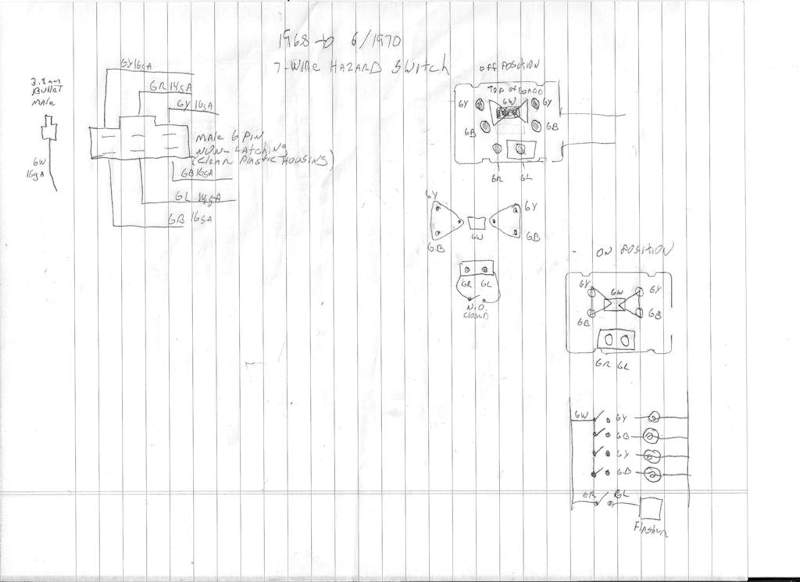 1968 to 6/1970
7-WIRE HAZARD SWITCH
GY16GA
GR 14GA
GY 16GA
Bullet
MALE
GW
16GA
MALE 6 PIN
NON-LATCHING
(CLEAR PLASTIC HOUSING)
GB 16GA
GL 14GA
GB 16GA
OFF POSITION
TOP OF BOARD
GY
GW
GY
GB
GB
GR
GL
GY
GY
GW
GB
GB
GR GL
N.O.
ON POSITION
GY
GW
GY
GB
GB
GR GL
GW
GY
GB
GY
GB
GR
GL
Flasher